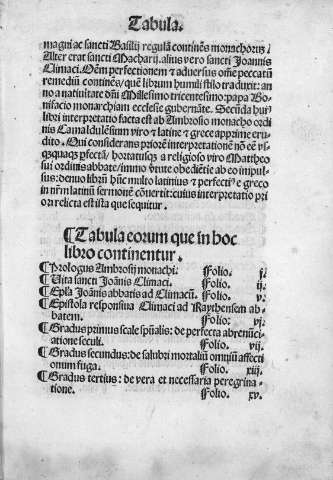 Tabula.
magni ac sancti Basilij regulā continēs monachorū:
Alter erat sancti Macharij. alius vero sancti Joannis
Climaci. Oēm perfectionem et aduersus oīne peccatū
remediū continēs/quē librum humili stilo traduxit: an
no a natiuitate dn̄i Millesimo tricentesimo: papa Bo
nifacio monarchiam ecclesie gubernāte. Secūda huiꝰ
libri interpretatio facta est ab Ambrosio monacho ordi
nis Camaldulēsium viro et latine et grece apprime eru
dito. Qui considerans priorē interpretationē nō eē vs
quequaqꝫ ꝑfectā/hortatusqꝫ a religioso viro Mattheo
sui ordinis abbate/immo v̓tute obediētie ab eo impul
sus: denuo librū hūc multo latinius et perfectiꝰ e greco
in nr̄m latinū sermonē cōuertit: cuius interpretatio pri
ori relicta est ista que sequitur.
¶Tabula eorum que in hoc
libro continentur.
¶Prologus Ambrosij monachi. Folio. j.
¶Uita sancti Joānis Climaci. Folio. ij.
¶Epl̄a Joānis abbatis ad Climacū. Folio. v.
¶Epistola responsiua Climaci ad Raythensem ab-
batem. Folio. vj.
¶Gradus primus scale spūalis: de perfecta abrenūci-
atione seculi. Folio. vij.
¶Gradus secundus: de salubri mortaliū omniū affecti
onum fuga. Folio. xiij.
¶Gradus tertius: de vera et necessaria peregrina-
tione. Folio. xv.